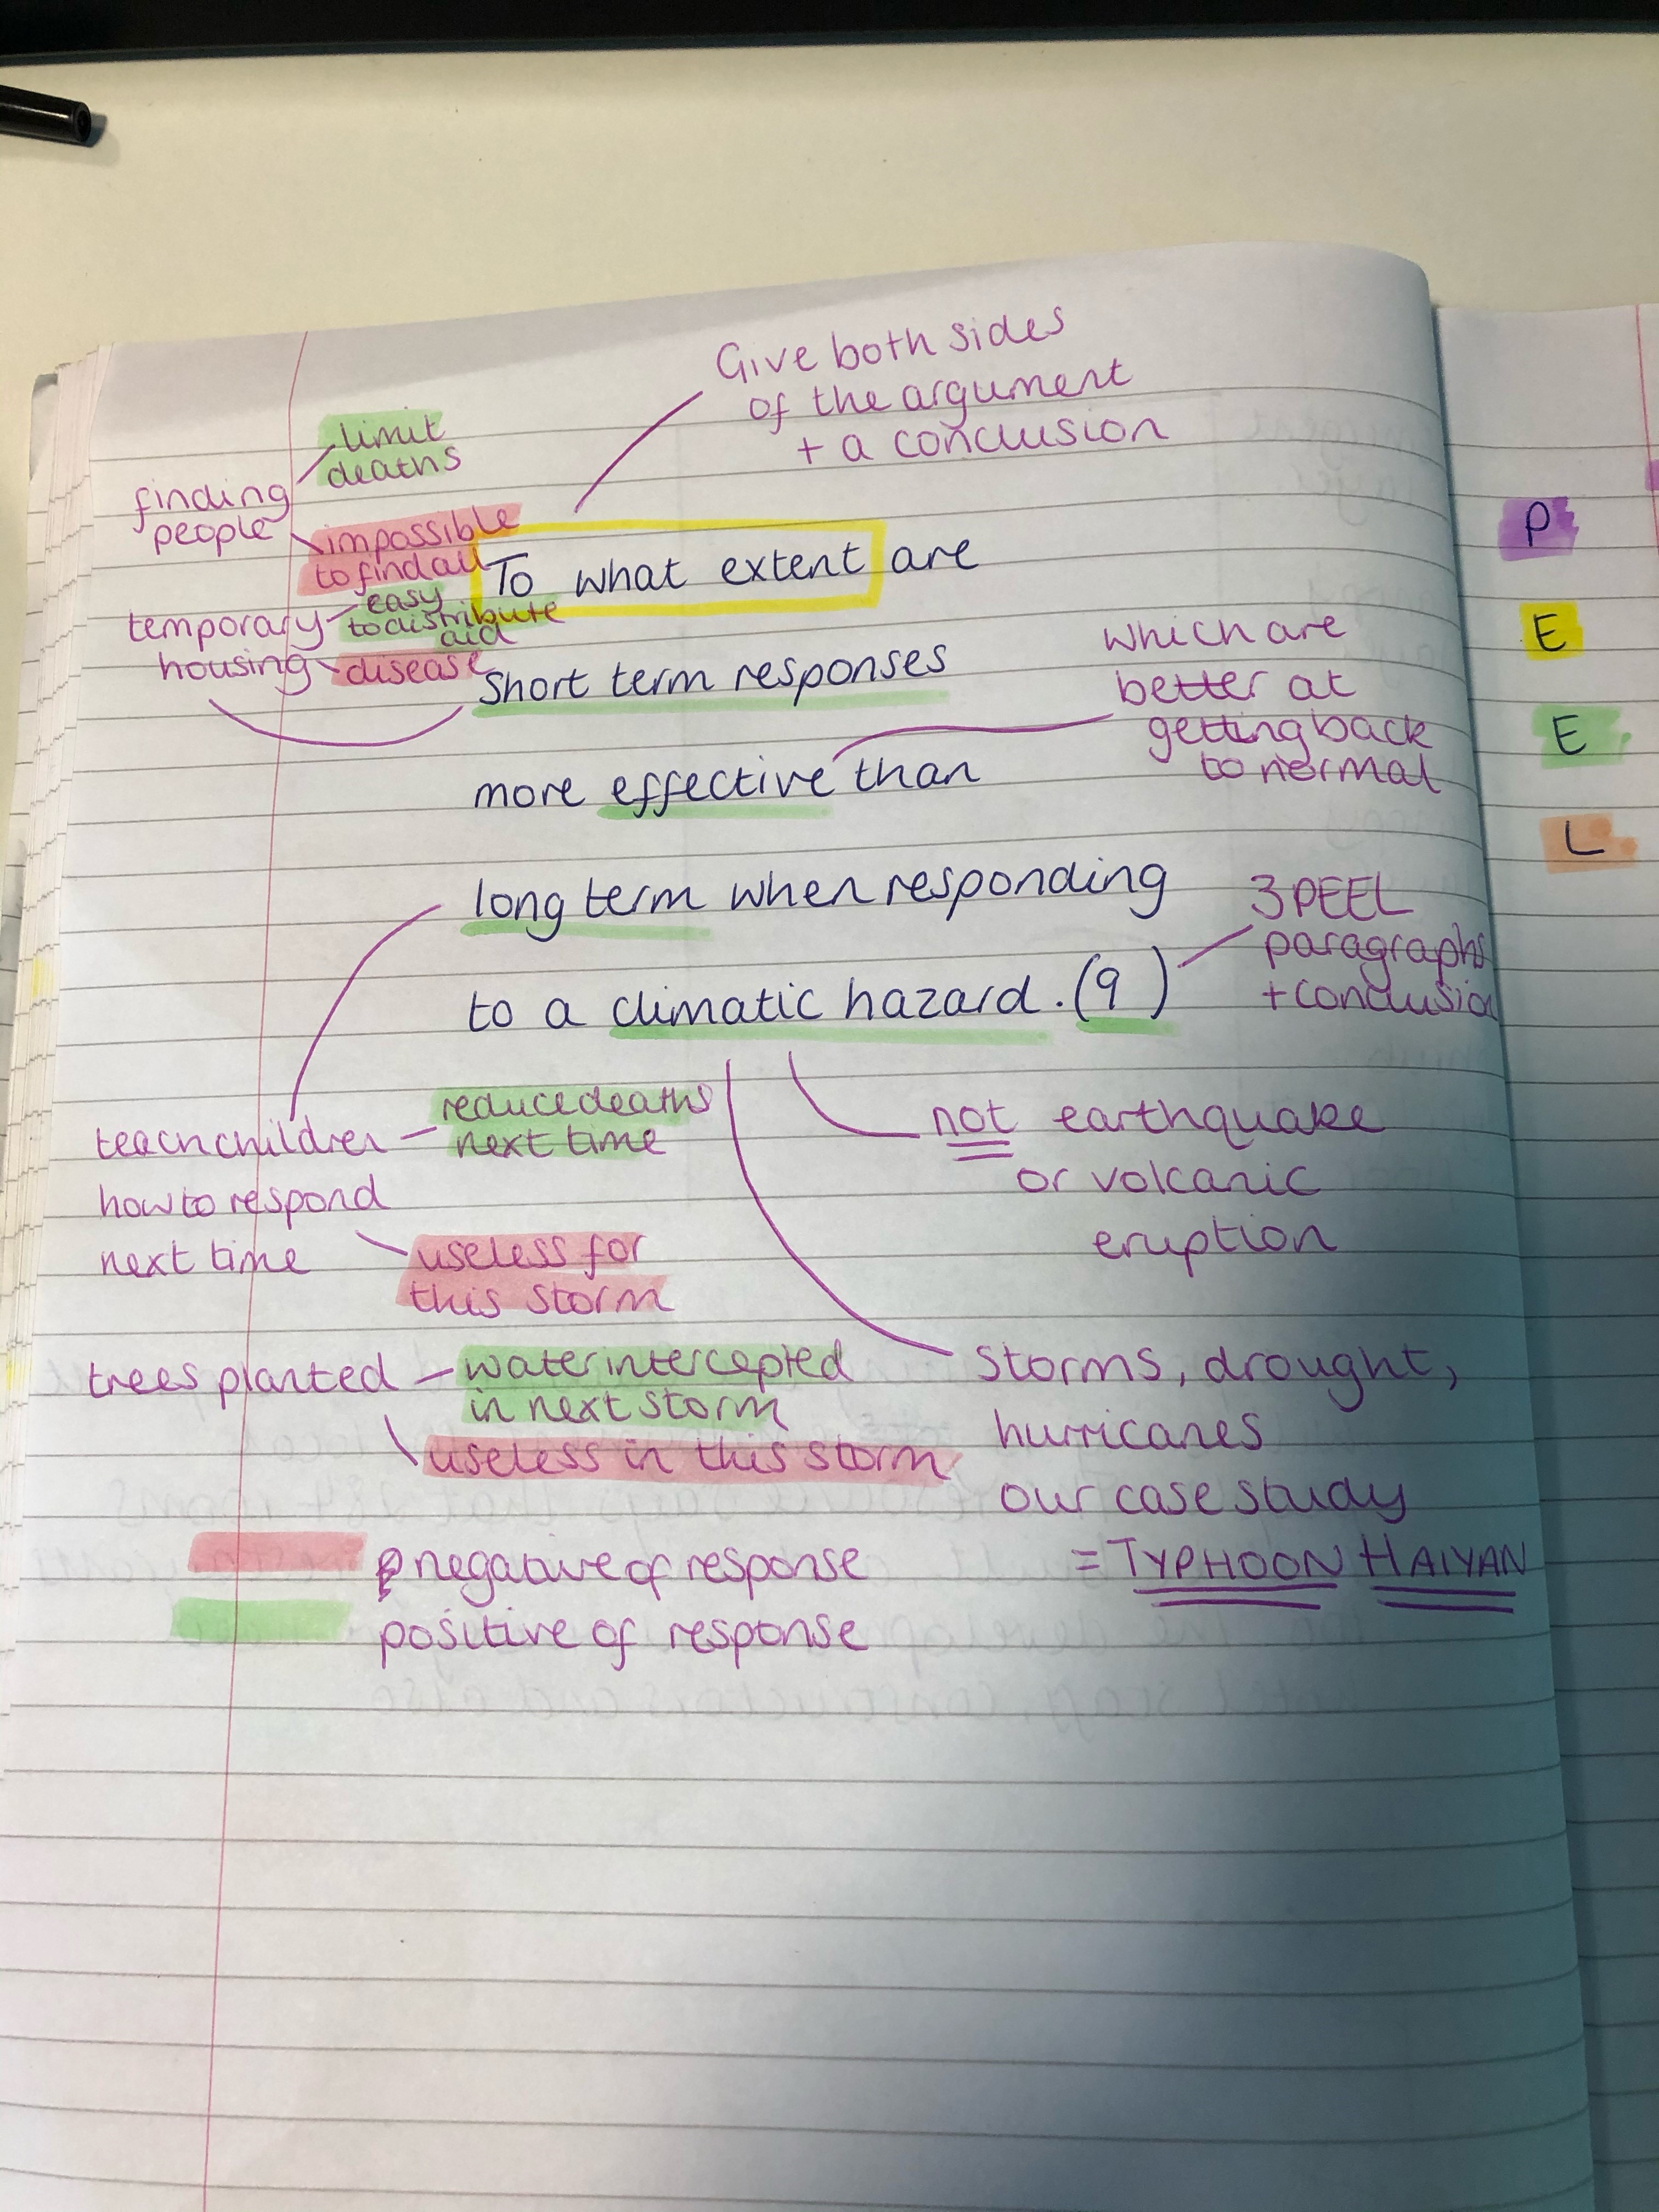 Give both sides
of the argument
+ a conclusion
limit
deaths
finding
people
impossible
to find all
To what extent are
easy
to distribute
aid
temporary
housing
disease
Short term responses
which are
better at
getting back
to normal
more effective than
long term when responding
3 PEEL
paragraphs
+ conclusion
to a climatic hazard. (9)
teach children
how to respond
next time
reduce deaths
next time
useless for
this storm
not earthquake
or volcanic
eruption
trees planted
water intercepted
in next storm
useless in this storm
storms, drought,
hurricanes
our case study
= TYPHOON HAIYAN
negative of response
positive of response
P
E
E
L